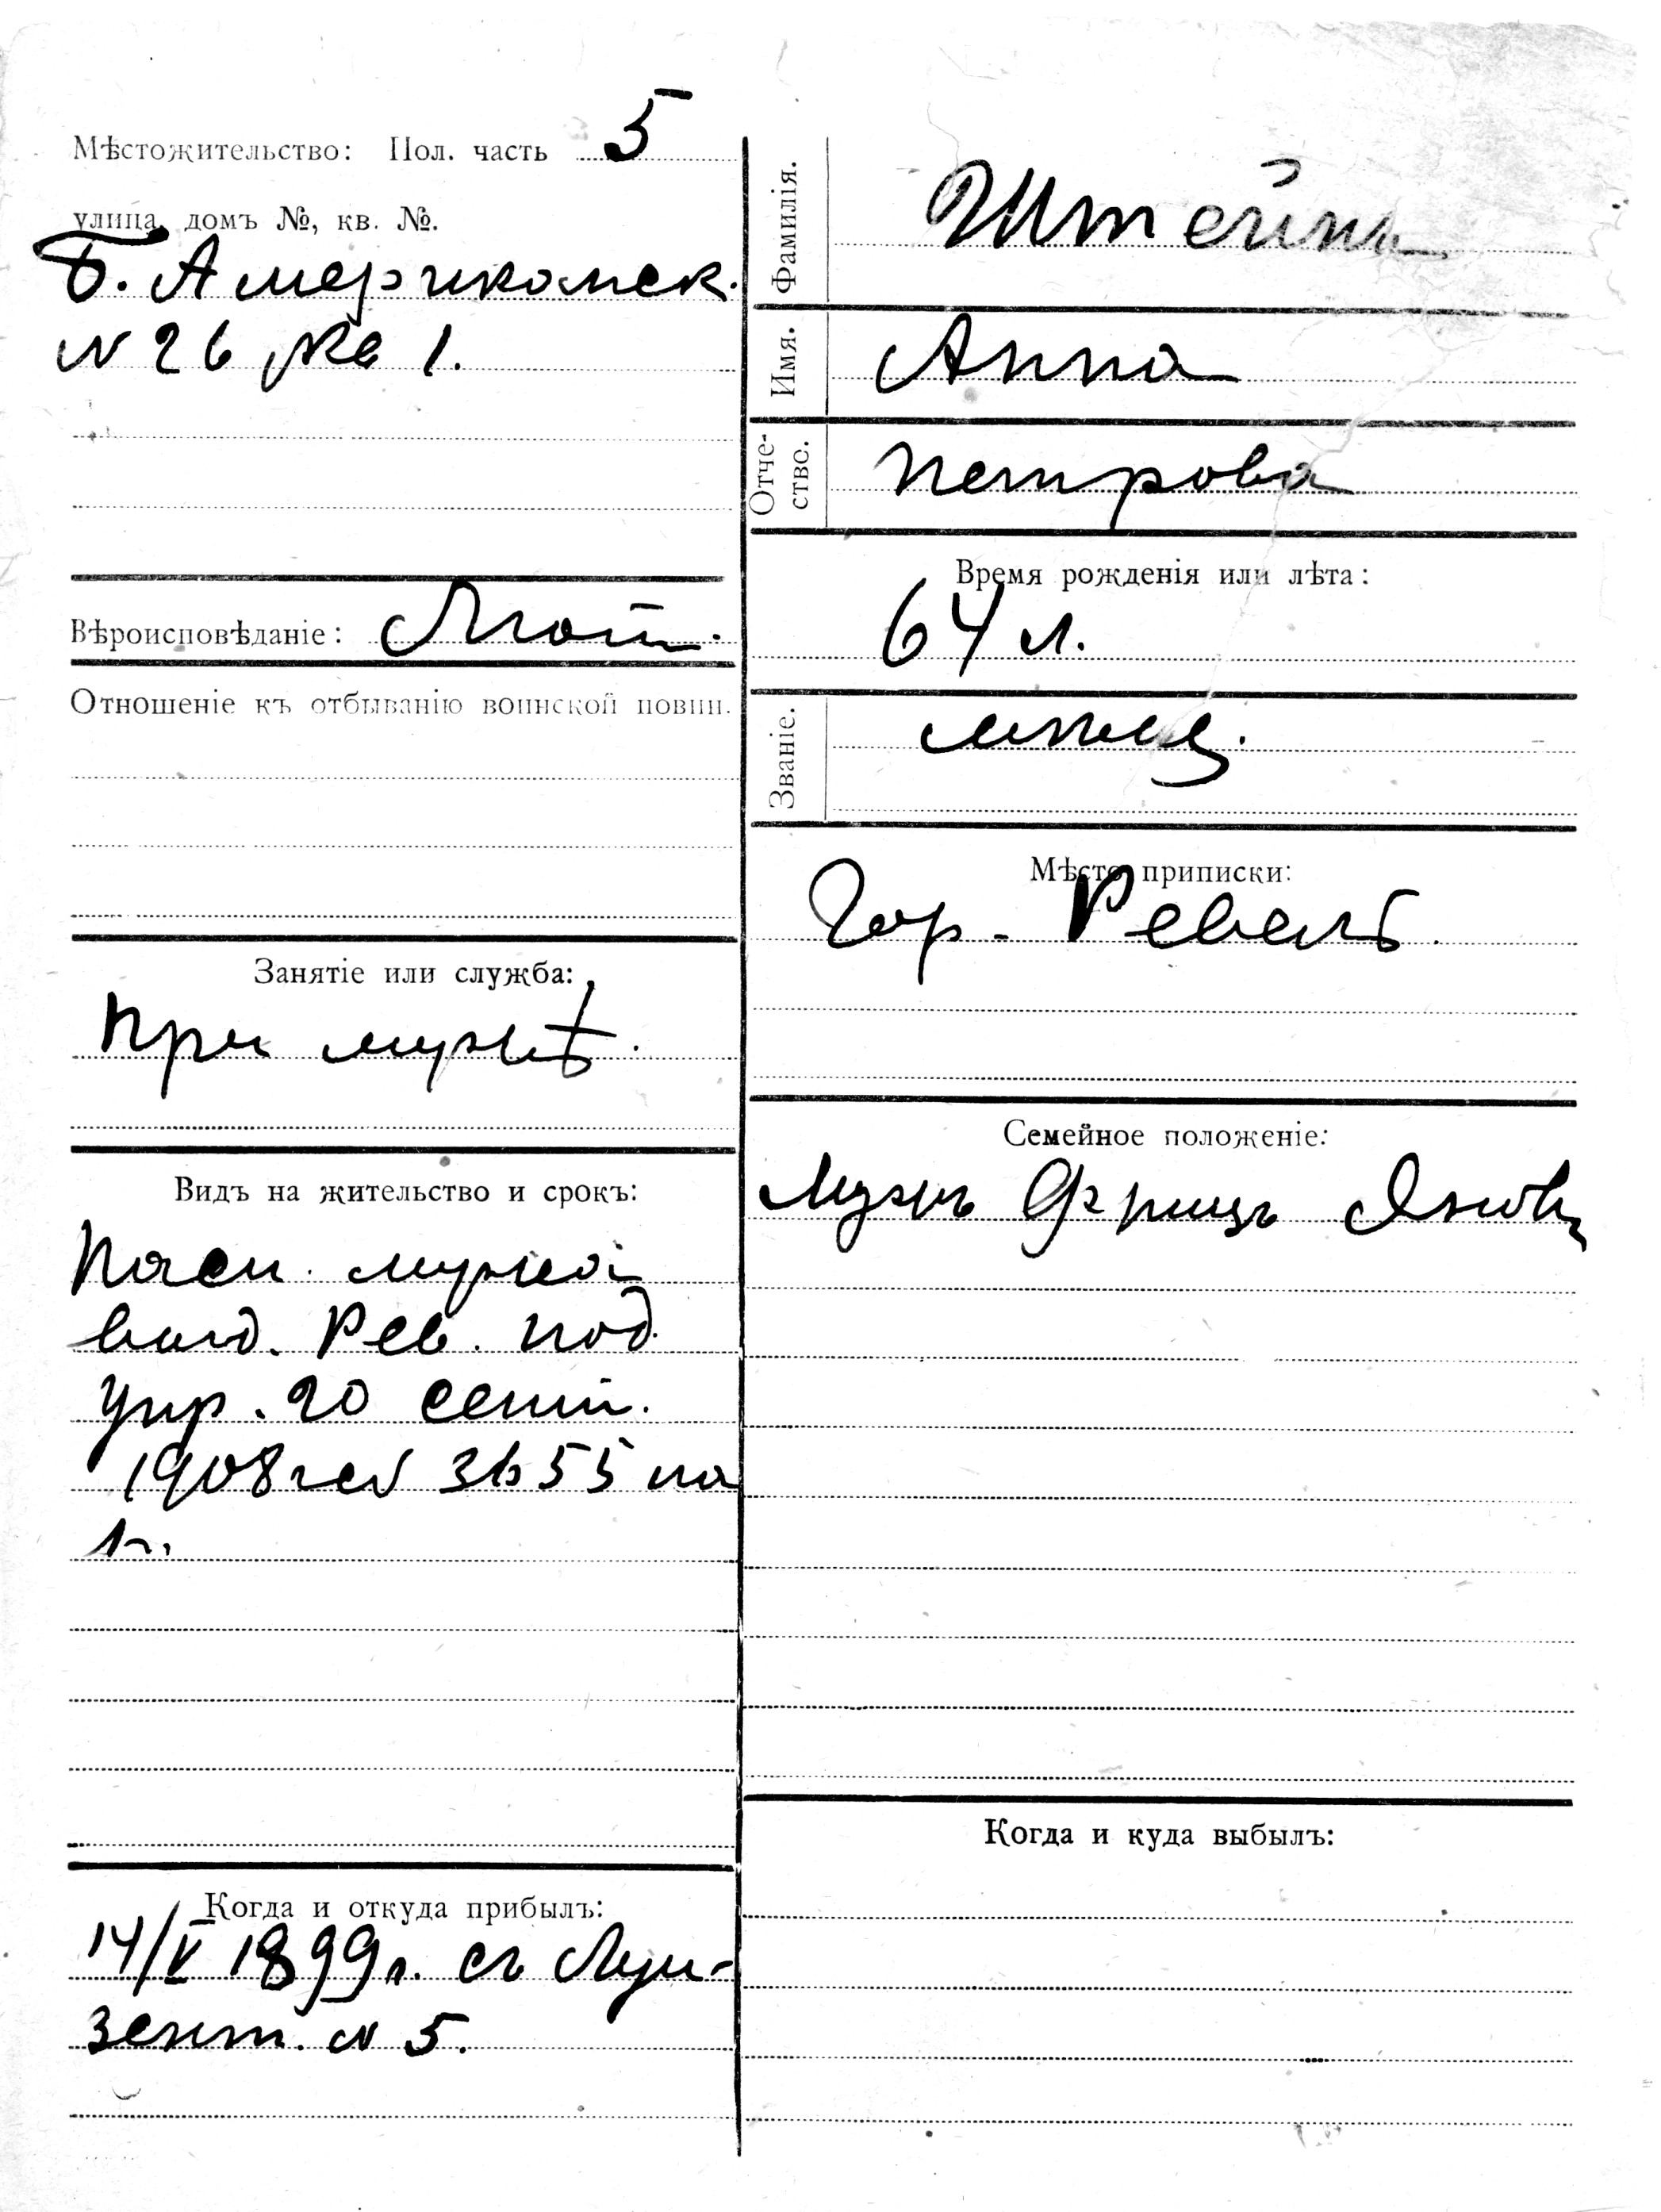 Мѣстожительство: Пол. часть 5
улица, домъ №, кв. №.
Б. Американск.
N 26 кв 1.
Вѣроисповѣданіе: Лют.
Отношеніе къ отбыванію воинской повин.
Занятіе или служба:
При мужѣ.
Видъ на жительство и срокъ:
Пасп. мужа
выд. Рев. под.
упр. 20 сент.
1908 г N 3655 на
1 г.
Когда и откуда прибылъ:
14/V 1899 г. съ Луи-
зент. N 5.
Фамилія.
Штейнъ
Имя.
Анна
Отче-
ство.
Петрова
Время рожденія или лѣта:
64 л.
Званіе.
мѣщ.
Мѣсто приписки:
Гор. Ревель.
Семейное положеніе:
Мужъ Фрицъ
Когда и куда выбылъ: